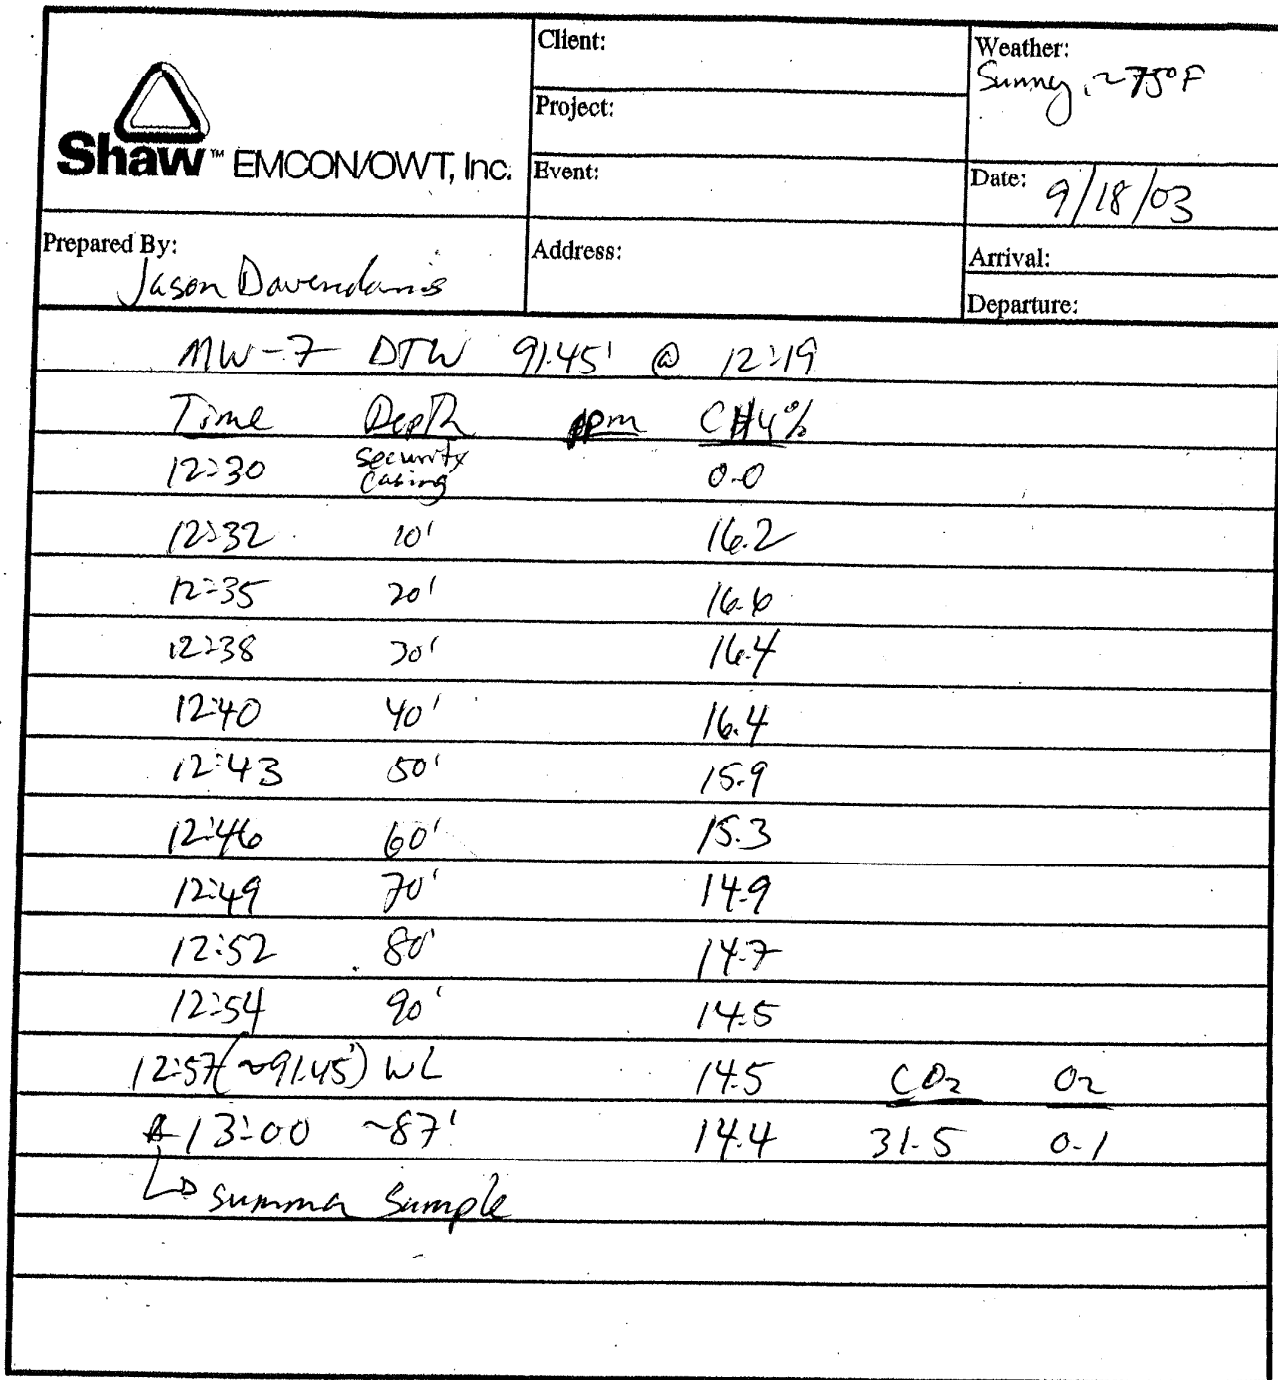 Shaw™ EMCON/OWT, Inc.
Client:
Project:
Event:
Weather:
Sunny, ~75°F
Date: 9/18/03
Prepared By:
Jason
Address:
Arrival:
Departure:
MW-7 DTW 91.45' @ 12:19
Time Depth ppm CH4%
12:30 security casing 0.0
12:32 10' 16.2
12:35 20' 16.6
12:38 30' 16.4
12:40 40' 16.4
12:43 50' 15.9
12:46 60' 15.3
12:49 70' 14.9
12:52 80' 14.7
12:54 90' 14.5
12:57 (~91.45') WL 14.5 CO2 O2
13:00 ~87' 14.4 31.5 0.1
↳ summa sample